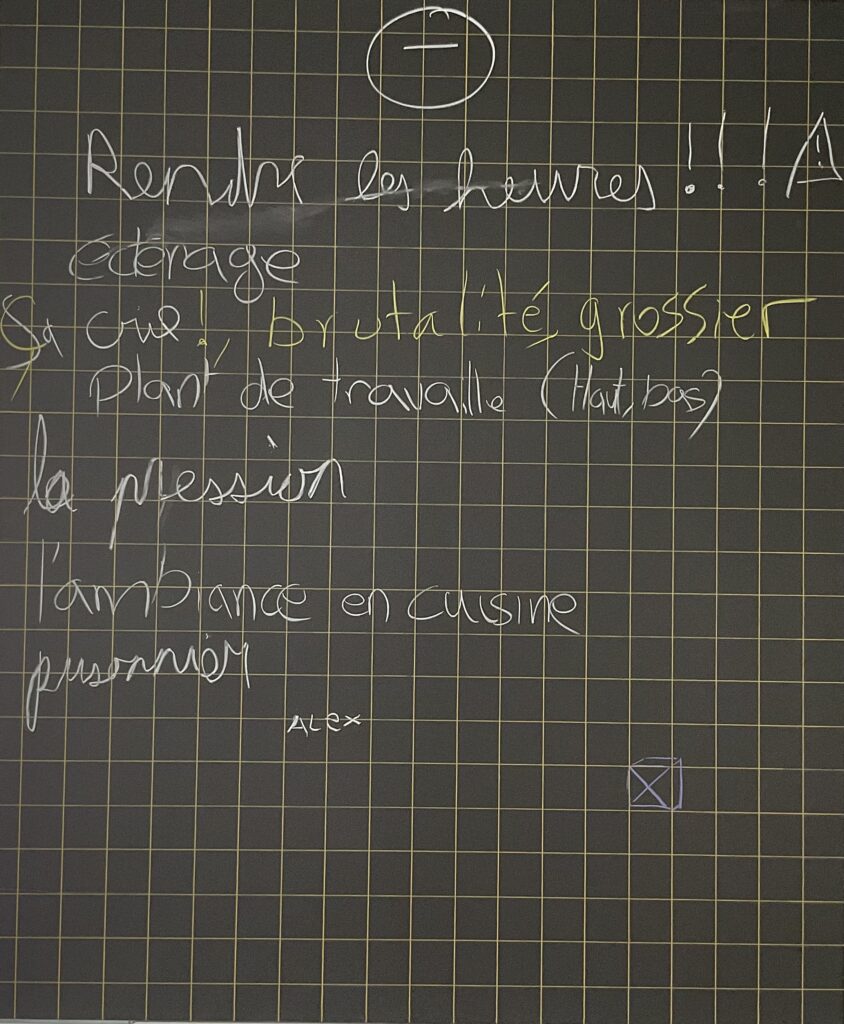 −
Rendre les heures !!! ⚠
éclérage
Ça crie !, brutalité, grossier
plant de travaille (Haut, bas)
la pression
l'ambiance en cuisine
prisonnier
ALex